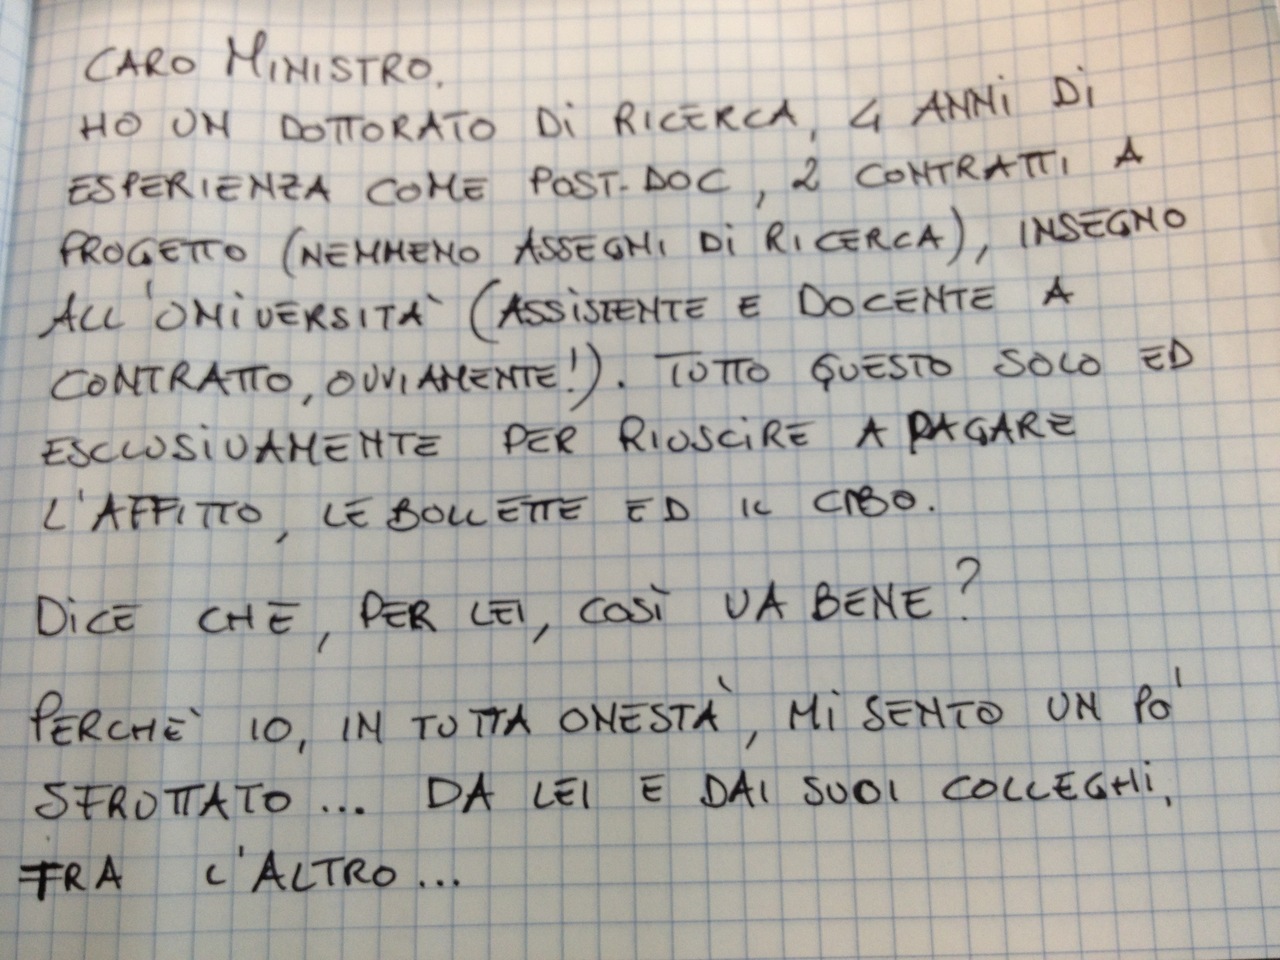 CARO MINISTRO.
HO UN DOTTORATO Di RICERCA, 4 ANNi Di
ESPERIENZA COME POST-DOC, 2 CONTRATTI A
PROGETTO (NEMMENO ASSEGNI Di RICERCA), INSEGNO
ALL'UNiVERSITÀ (ASSiSTENTE E DOCENTE A
CONTRATTO, OVVIAMENTE!). TUTTO QUESTO SOLO ED
ESCLUSiVAMENTE PER RIUSCiRE A PAGARE
L'AFFITTO, LE BOLLETTE ED IL CIBO.
DiCE CHE, PER LEI, COSÌ VA BENE?
PERCHÈ IO, IN TUTTA ONESTÀ, Mi SENTO UN PO'
SFRUTTATO... DA LEI E DAI SUOI COLLEGHi,
FRA L'ALTRO...